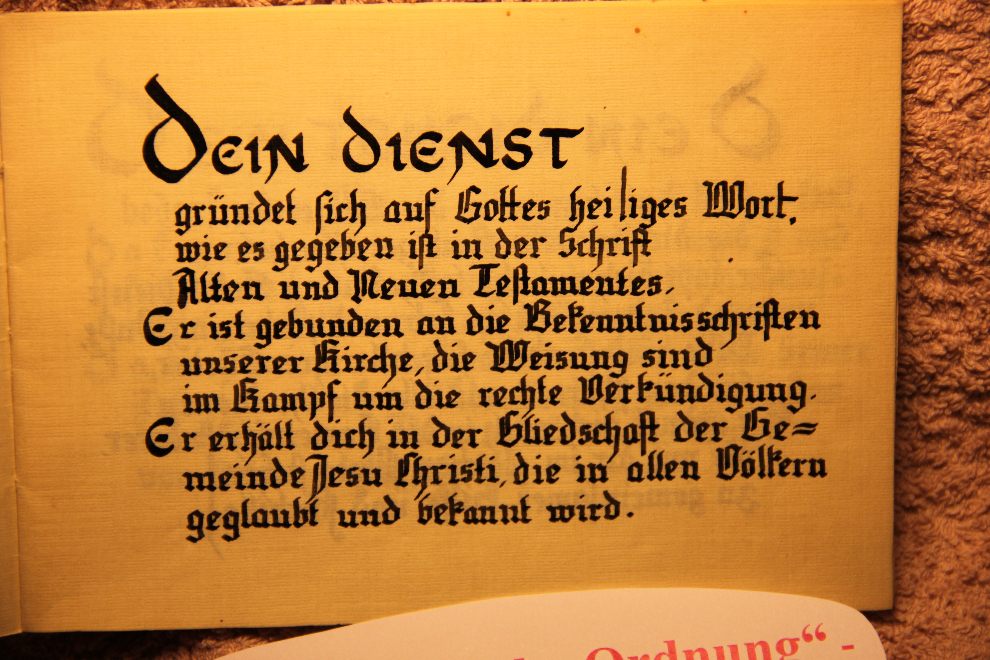 Dein Dienst
gründet sich auf Gottes heiliges Wort,
wie es gegeben ist in der Schrift
Alten und Neuen Testamentes.
Er ist gebunden an die Bekenntnisschriften
unserer Kirche, die Weisung sind
im Kampf um die rechte Verkündigung.
Er erhält dich in der Gliedschaft der Ge=
meinde Jesu Christi, die in allen Völkern
geglaubt und bekannt wird.
Ordnung“ -